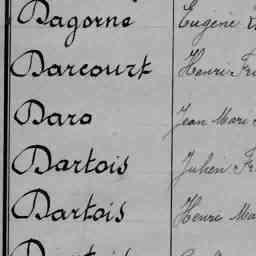 Dagorne Eugène
Darcourt Henri
Daro Jean Mari
Dartois Julien
Dartois Henri